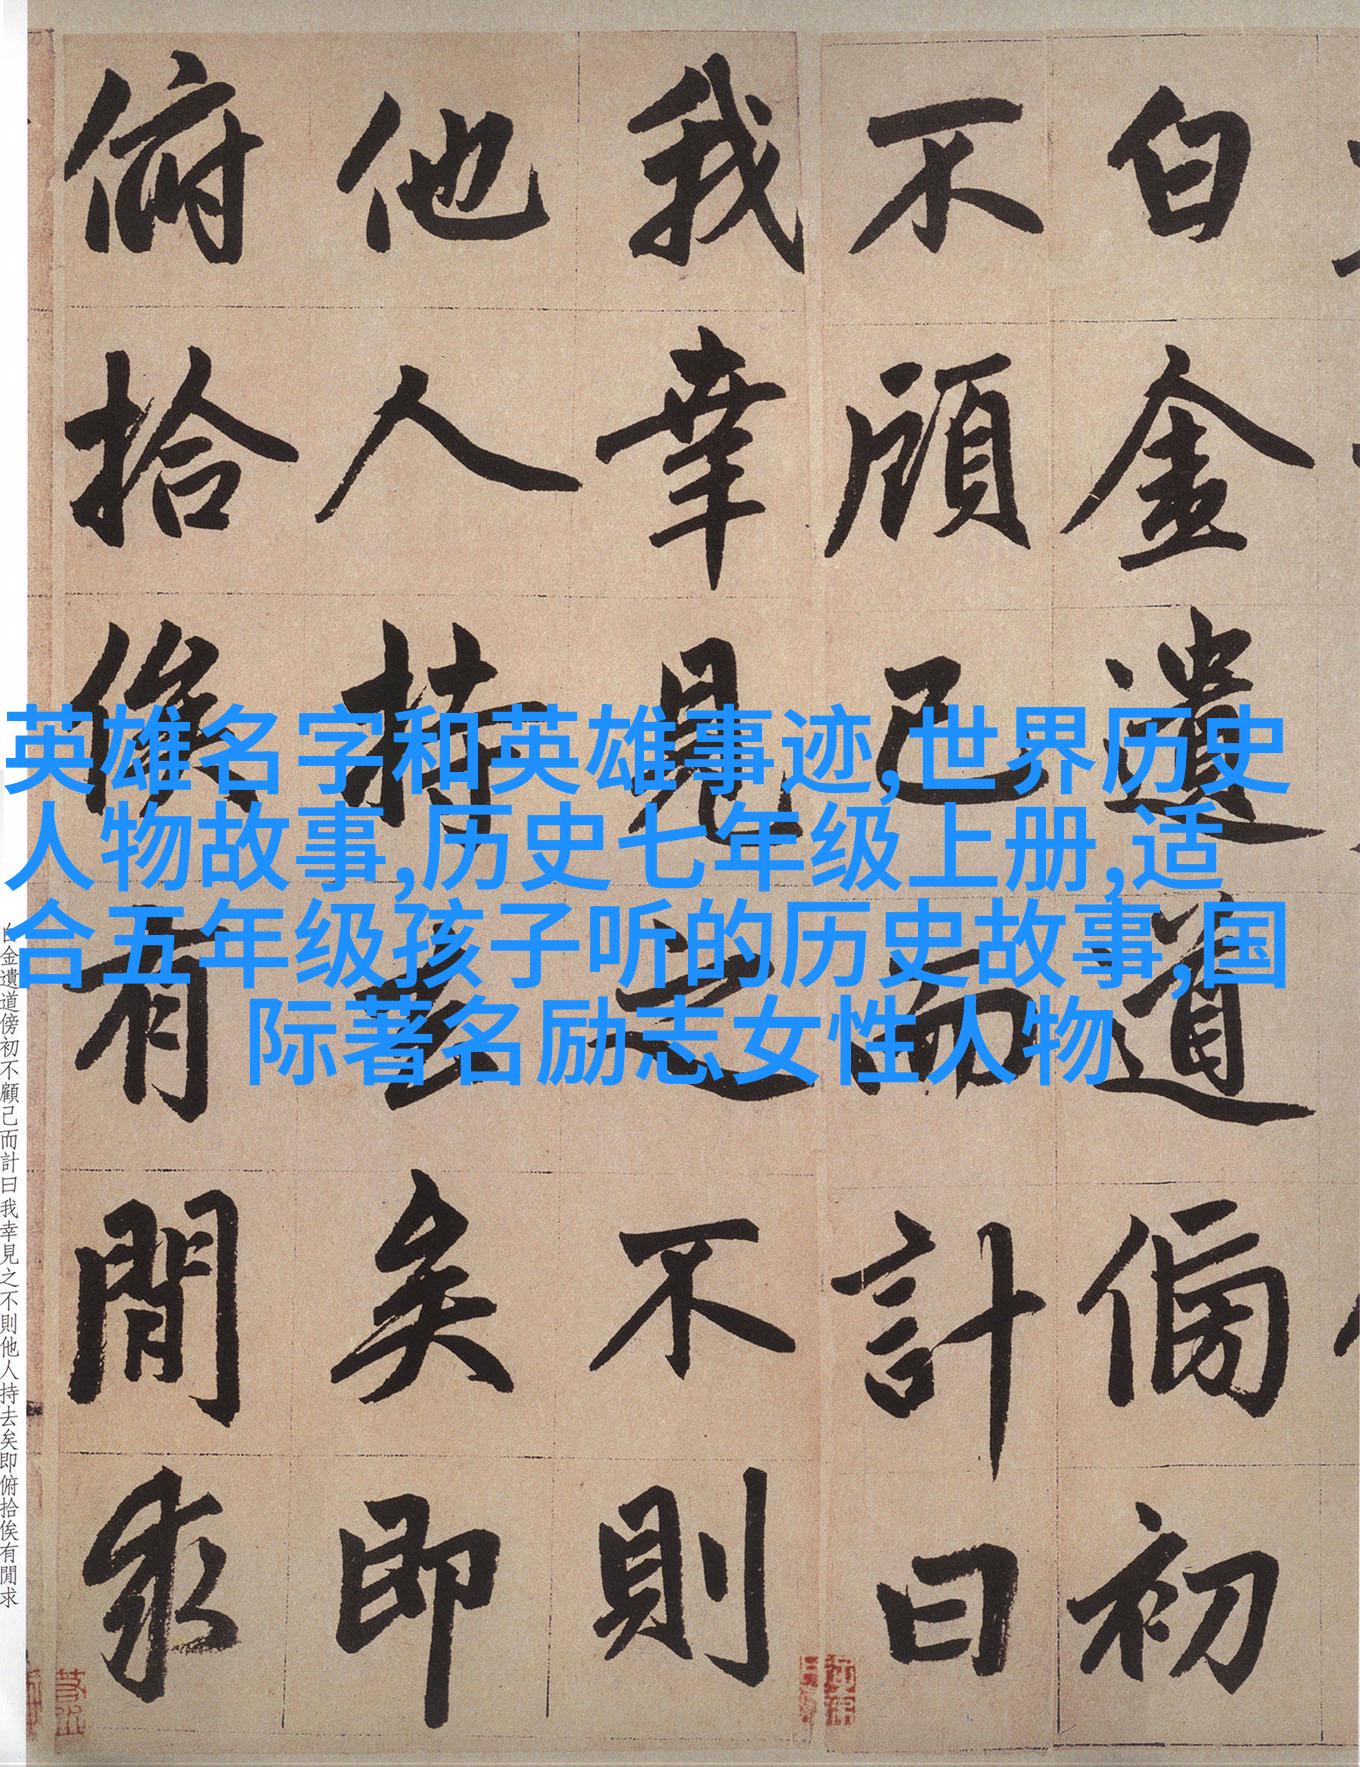 白金遺道傍初
不顧己而計曰
我幸見之不則
他人持去矣即
俯拾俟有閒求
英雄名字和英雄事迹,世界历史
人物故事,历史七年级上册,适
合五年级孩子听的历史故事,国
际著名励志女性人物
白金遺道傍初不顧己而計曰我幸見之不則他人持去矣即俯拾俟有閒求